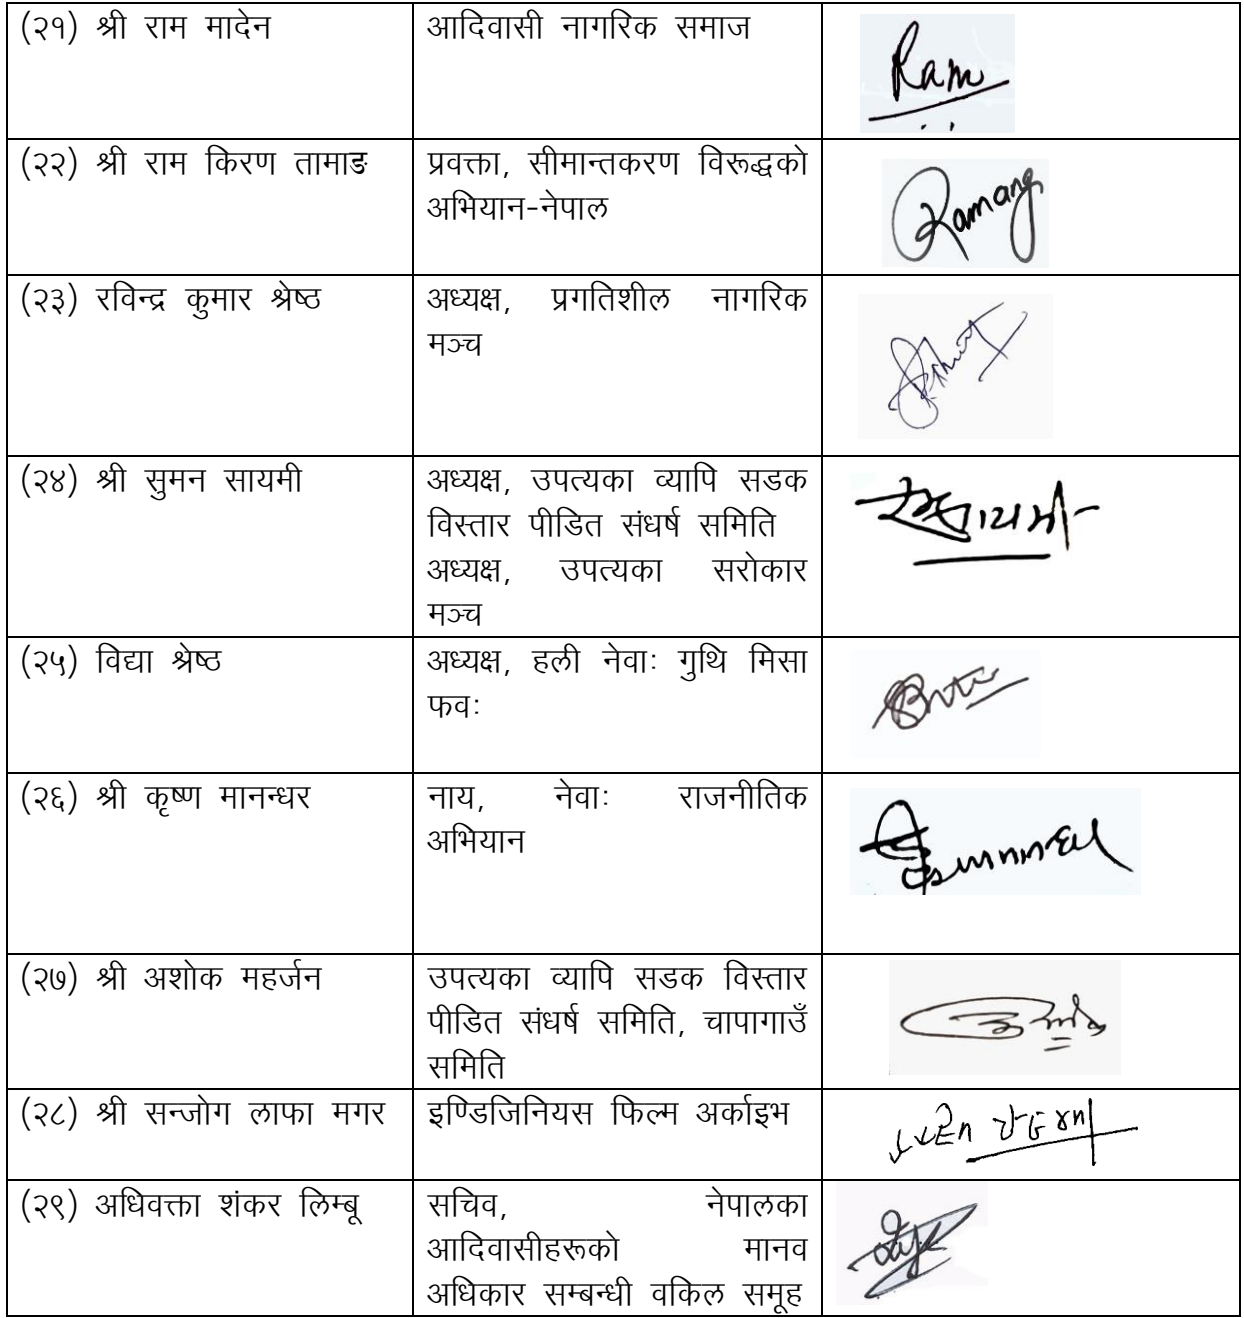 (२१) श्री राम मादेन
आदिवासी नागरिक समाज
Ram
(२२) श्री राम किरण तामाङ
प्रवक्ता, सीमान्तकरण विरूद्धको
अभियान-नेपाल
Ramang
(२३) रविन्द्र कुमार श्रेष्ठ
अध्यक्ष, प्रगतिशील नागरिक
मञ्च
(२४) श्री सुमन सायमी
अध्यक्ष, उपत्यका व्यापि सडक
विस्तार पीडित संधर्ष समिति
अध्यक्ष, उपत्यका सरोकार
मञ्च
(२५) विद्या श्रेष्ठ
अध्यक्ष, हली नेवाः गुथि मिसा
फवः
(२६) श्री कृष्ण मानन्धर
नाय, नेवाः राजनीतिक
अभियान
(२७) श्री अशोक महर्जन
उपत्यका व्यापि सडक विस्तार
पीडित संधर्ष समिति, चापागाउँ
समिति
(२८) श्री सन्जोग लाफा मगर
इण्डिजिनियस फिल्म अर्काइभ
(२९) अधिवक्ता शंकर लिम्बू
सचिव, नेपालका
आदिवासीहरूको मानव
अधिकार सम्बन्धी वकिल समूह